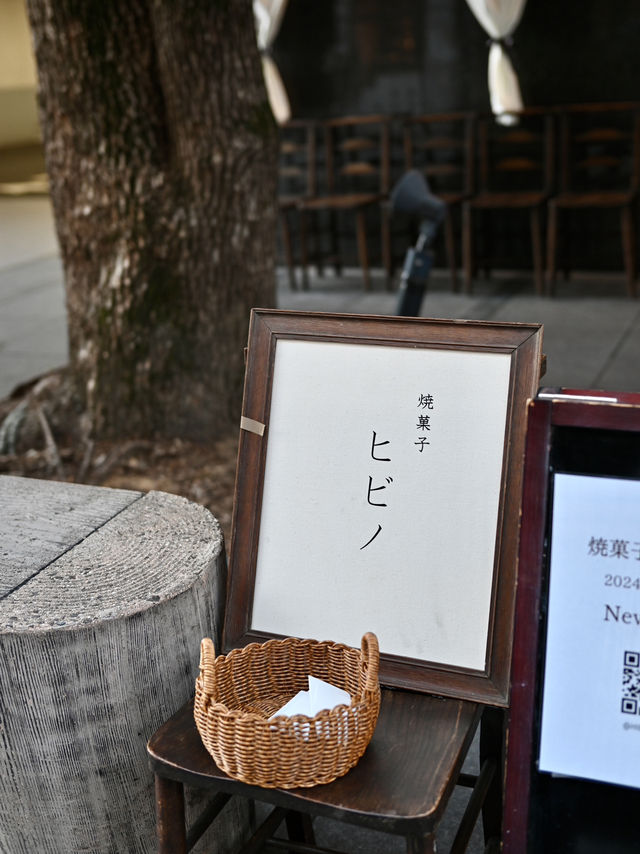 焼菓子
ヒビノ
焼菓子
2024
New